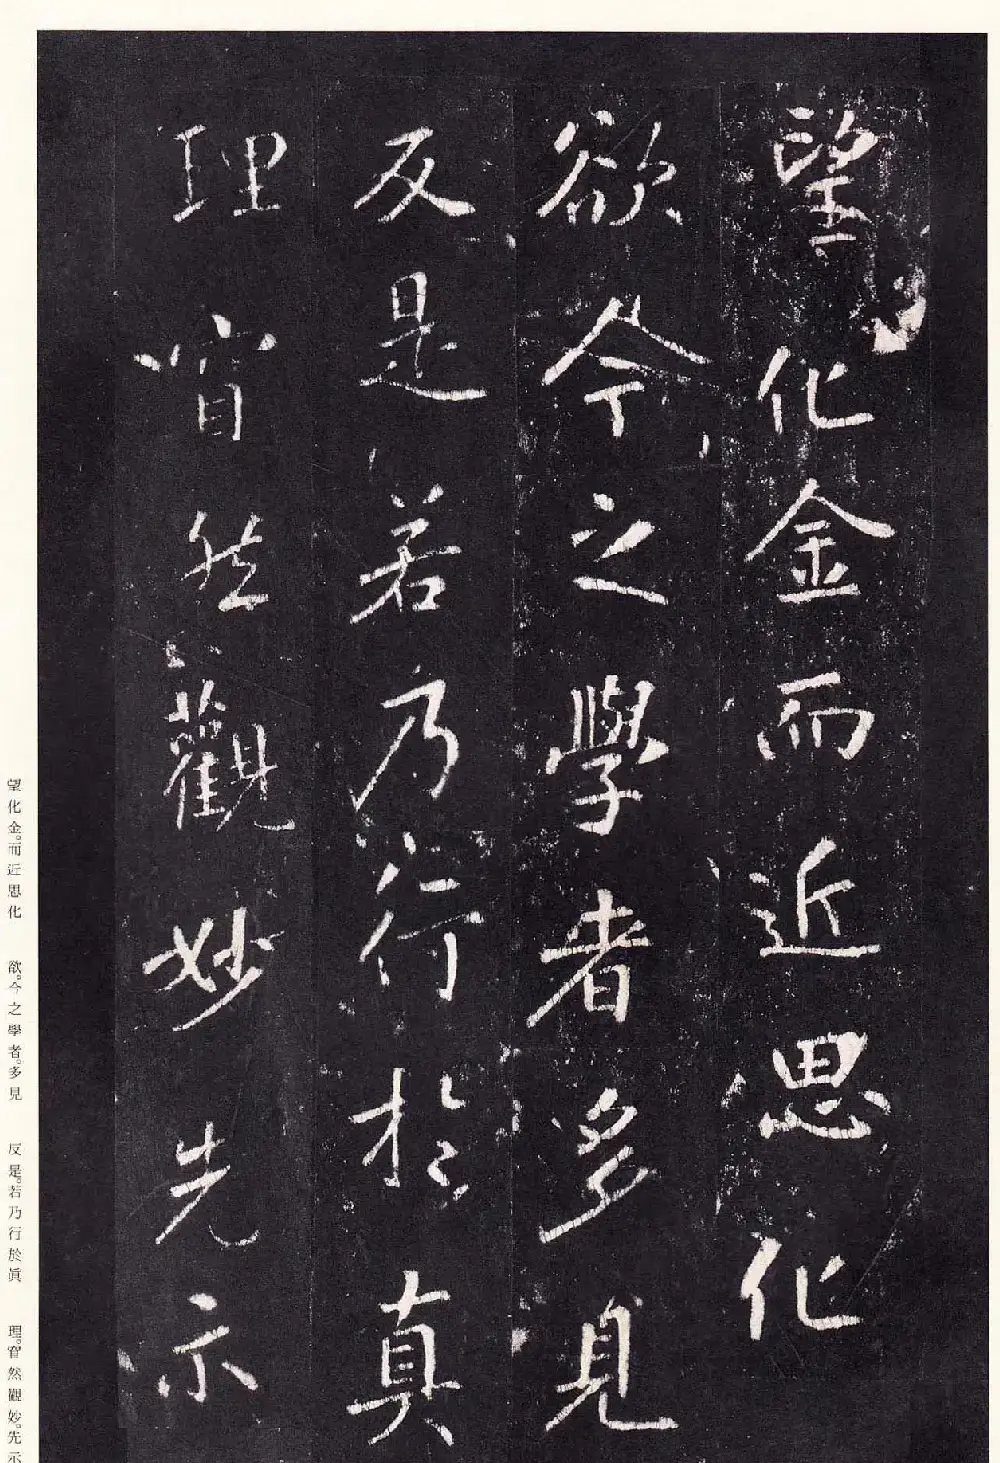 望化金而近思化
欲今之學者多見
反是若乃行於真
理窅然觀妙先示
望化金。而近思化　欲。今之學者。多見　反是。若乃行於眞　理。窅然觀妙。先示